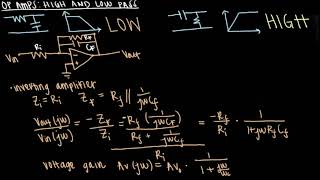 OP AMPS: HIGH AND LOW PASS
LOW
HIGH
Rf
Cf
Vin
Ri
Vout
• inverting amplifier
Zi = Ri   Zf = Rf || 1/jωCf
Vout(jω)/Vin(jω) = -Zf/Zi = (-Rf (1/jωCf) / (Rf + 1/jωCf)) / Ri = -Rf/Ri · 1/(1+jωRfCf)
voltage gain   Av(jω) = Avo · 1/(1+ jω/ω